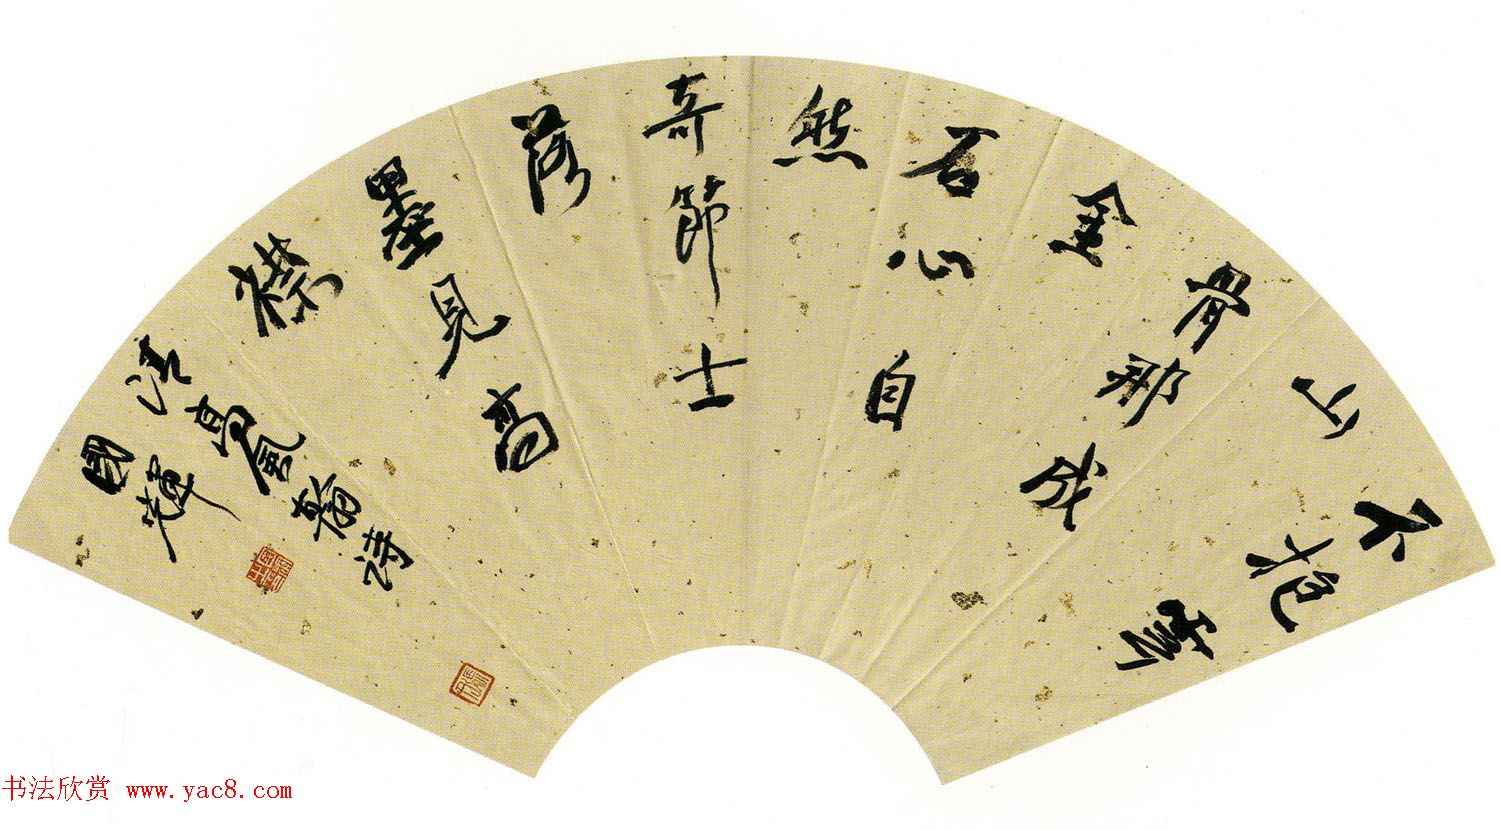 不抱雪
山
骨那成
金
石心自
然
奇節士
落
墨見高
襟
清高鳳翰詩
國輝
书法欣赏 www.yac8.com